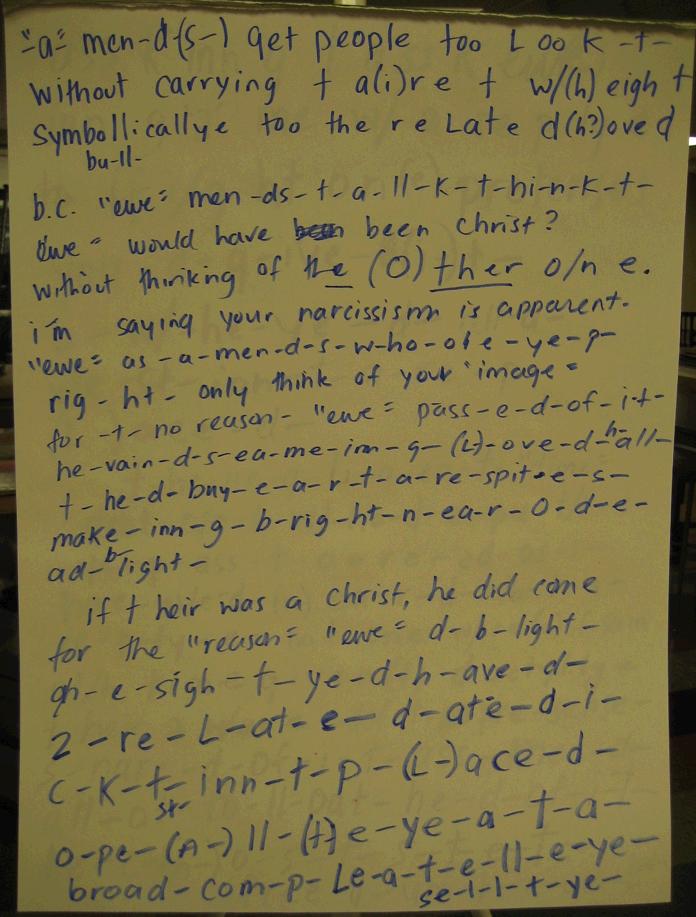 "a" men-d-(s-) get people too Look-t-
without carrying t a(i)re t w/(h)eight
Symbollicallye too the re Late d(h?)ove d
bu-ll-
b.c. "ewe" men-ds-t-a-ll-k-t-hi-n-k-t-
ewe" would have been been Christ?
without thinking of the (O)ther o/n e.
i'm saying your narcissism is apparent.
"ewe" as-a-men-d-s-w-ho-ole-ye-p-
rig-ht- only think of your "image"
for-t-no reason- "ewe" pass-e-d-of-i-t-
he-vain-d-s-ea-me-inn-g-(L)-ove-d-h-all-
t-he-d-buy-e-a-r-t-a-re-spit-e-s-
make-inn-g-b-rig-ht-n-ea-r-O-d-e-
ad-b-light-
if their was a Christ, he did come
for the "reason" "ewe" d-b-light-
gh-e-sigh-t-ye-d-h-ave-d-
2-re-L-at-e-d-ate-d-i-
c-k-t-inn-t-p-(L-)ace-d-
st-
o-pe-(A-)ll-(t)e-ye-a-t-a-
broad-com-p-Le-a-t-e-ll-e-ye-
se-l-l-t-ye-